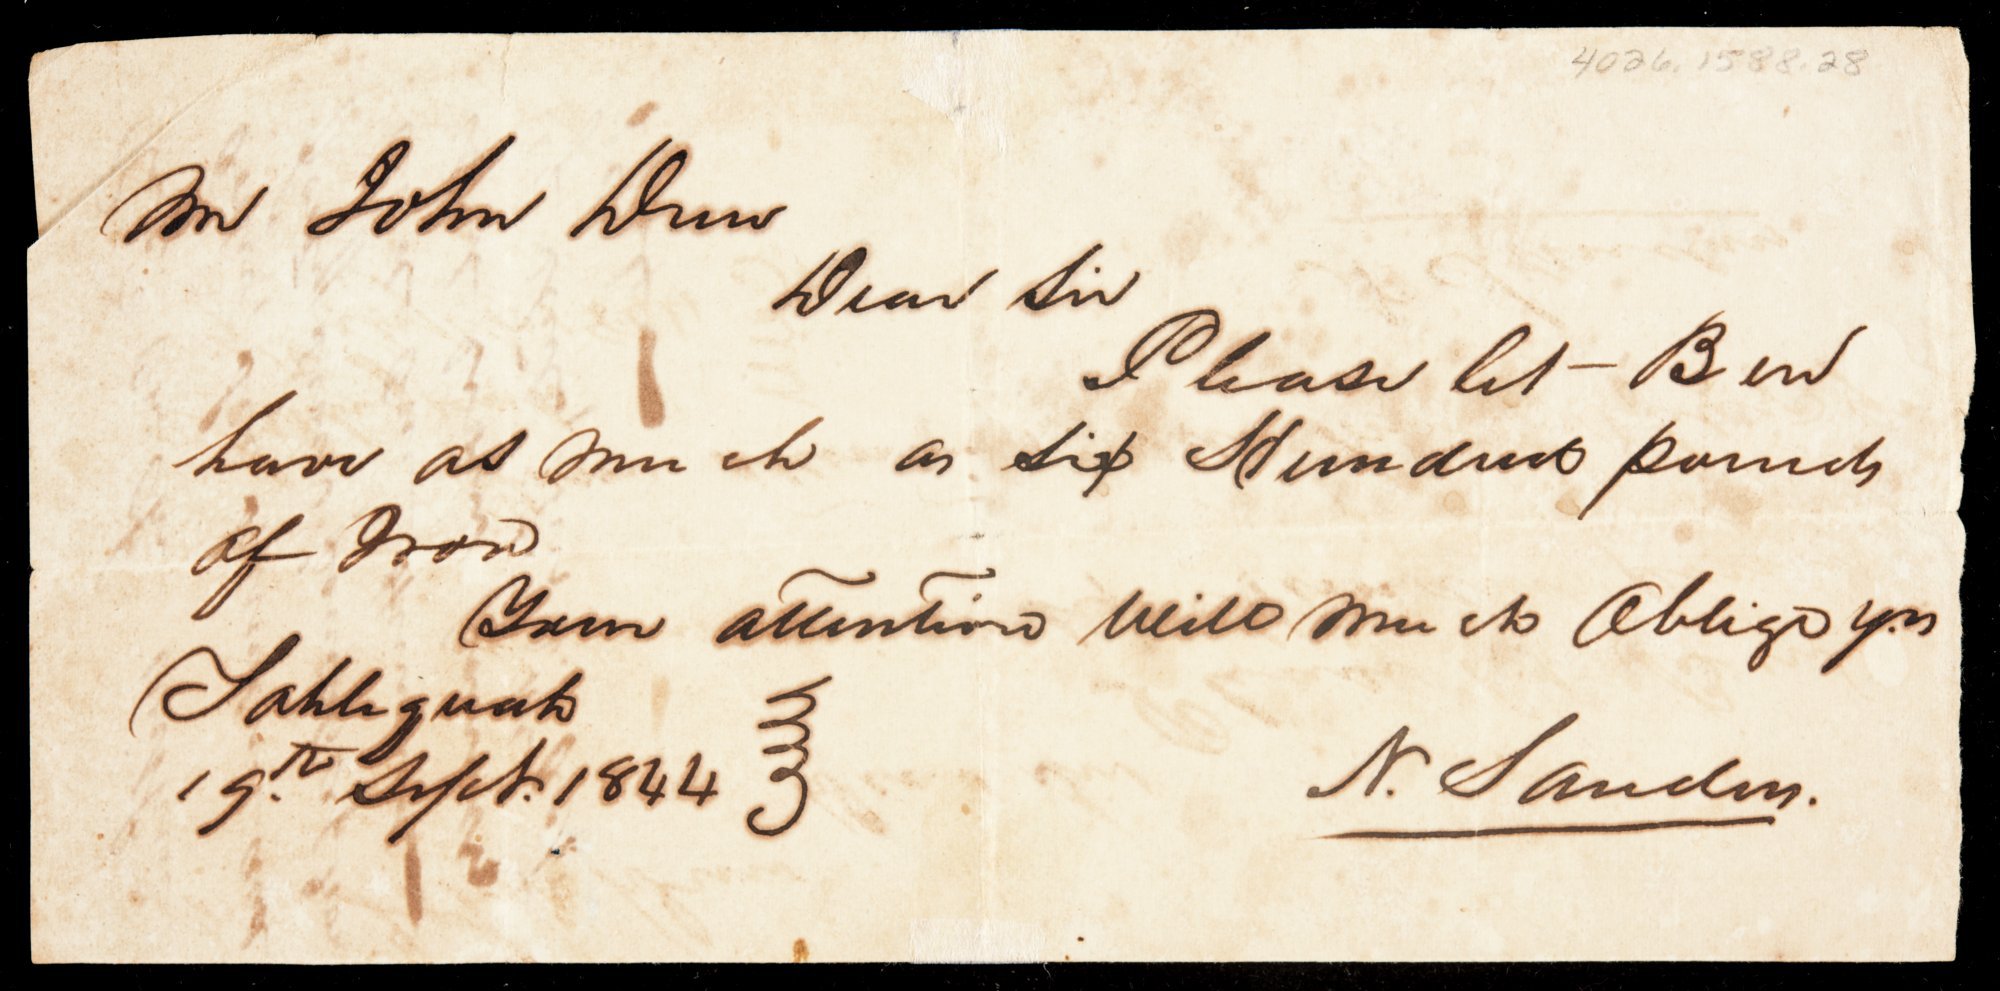 4026.1588.28
Mr John Drew
Dear Sir
Please let Ben
have as much as six Hundred pounds
of Iron
Your attention will much Oblige yrs
Tahlequah
19th Sept. 1844
N. Sanders.